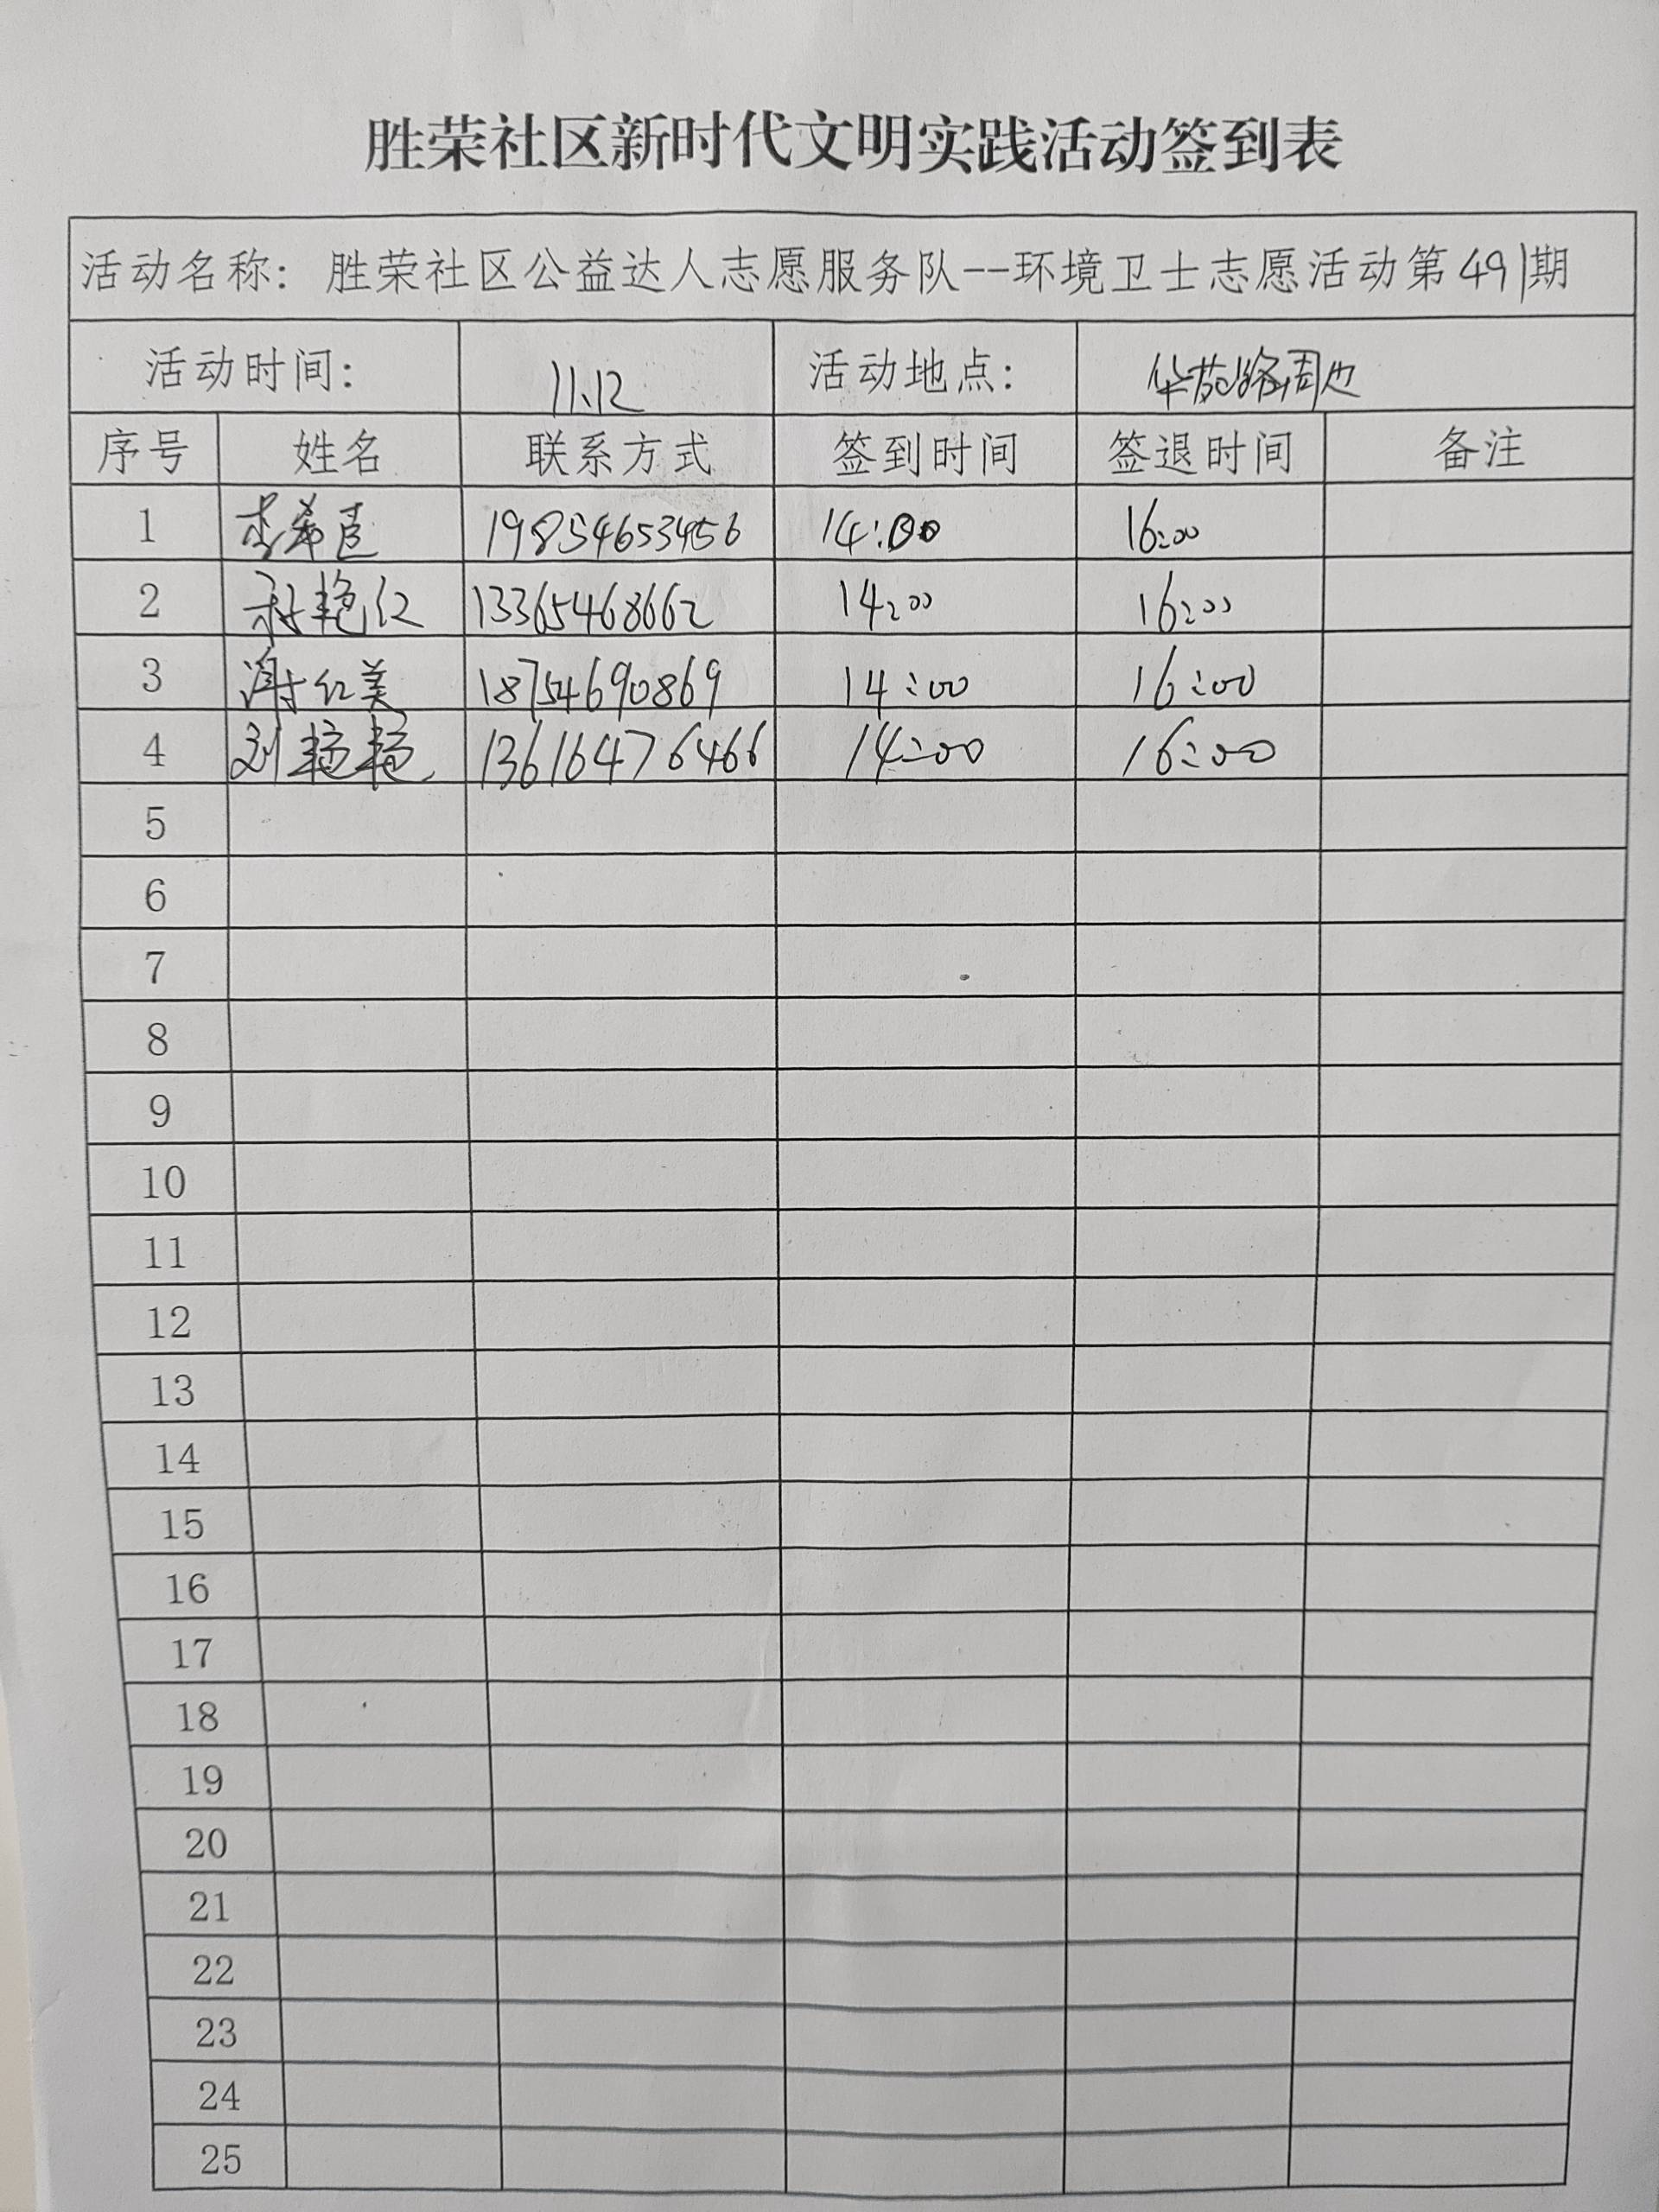 胜荣社区新时代文明实践活动签到表
活动名称：胜荣社区公益达人志愿服务队--环境卫士志愿活动第491期
活动时间： 11.12 活动地点： 华苑路周边
序号 姓名 联系方式 签到时间 签退时间 备注
1 李希臣 19854653456 14:00 16:00
2 艳红 13365468662 14:00 16:00
3 谢红美 18754690869 14:00 16:00
4 刘艳艳 13616476466 14:00 16:00
5
6
7
8
9
10
11
12
13
14
15
16
17
18
19
20
21
22
23
24
25